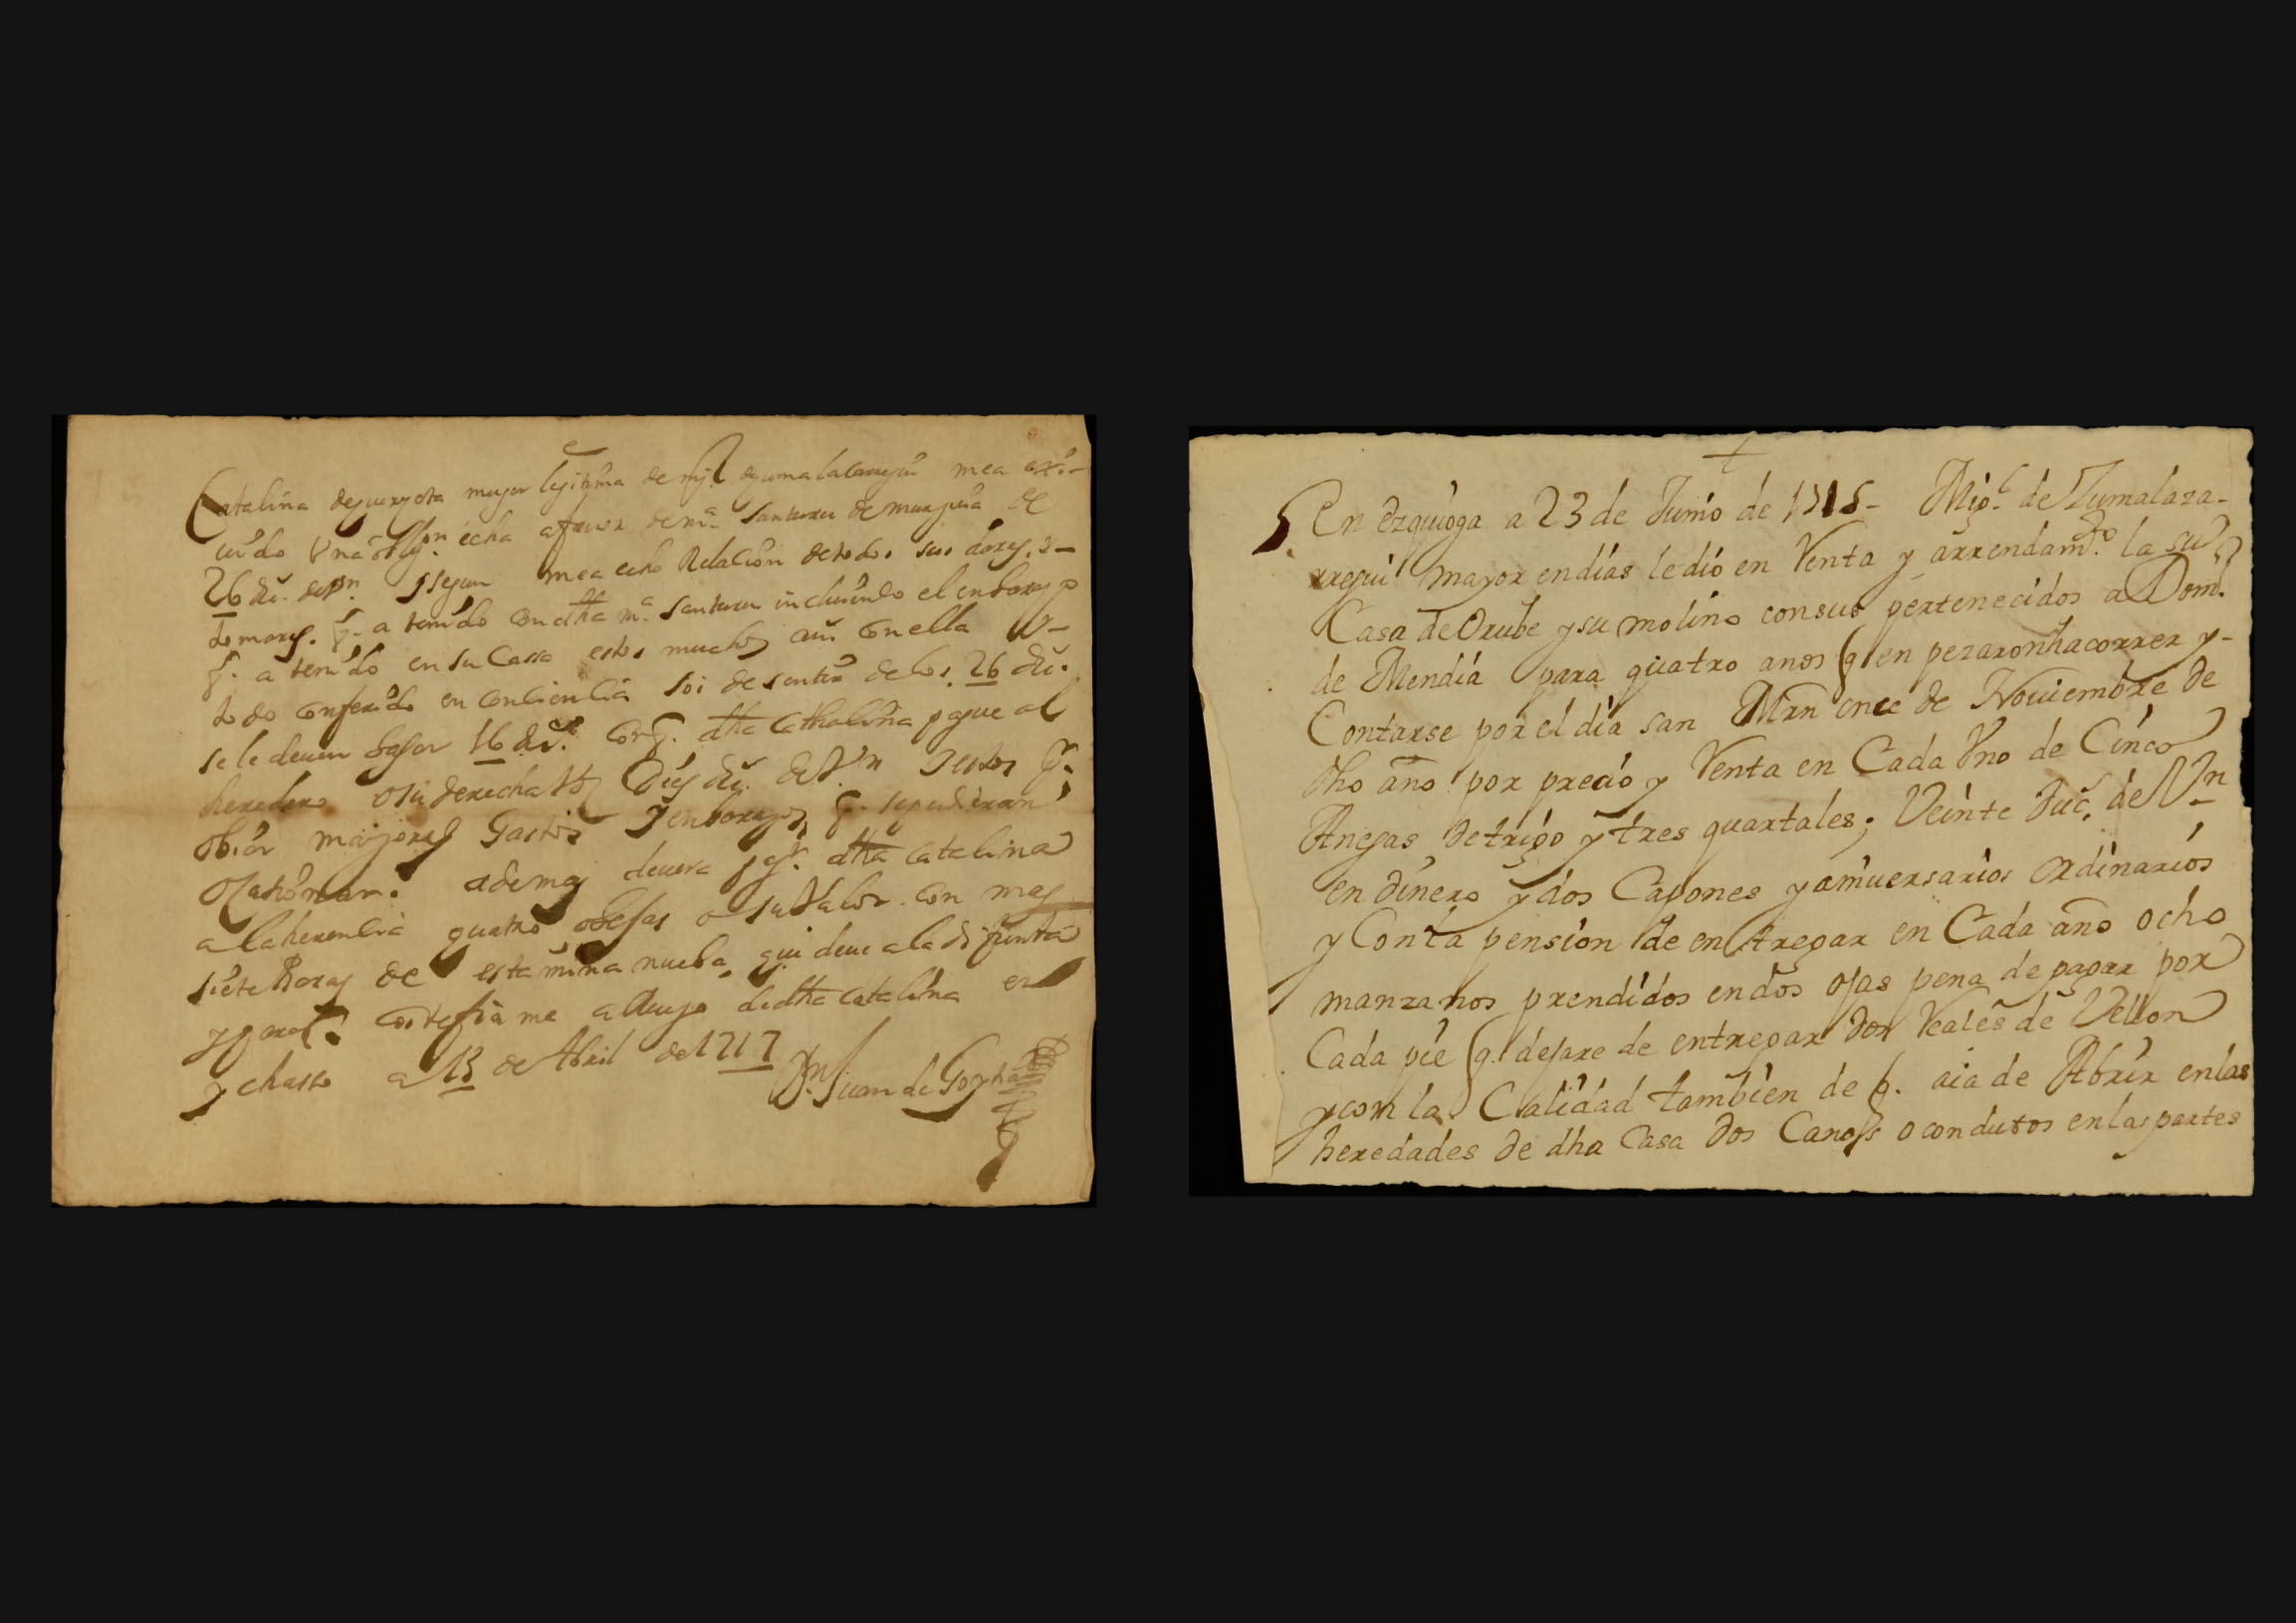 Catalina de muger legitima de mig.l de zumalacarregui mea exi-
uido Vna oblig.on echa a fauor de m.a Santuru de murguia de
26 du.s de p.n y segun mea echo Relacion de todos sus
q. a tenido con dha m.a Santuru incluiendo el enbarazo
q. a tenido en su Cassa estos muchos añ. con ella y-
todo conferido en Conciencia soi de sentir de los 26 du.
se le deuen bajar 16 du.s Con q. dha Cathalina pague al
heredero o su derecha Diez du. de V.n Iustos q.
obiar maijores Gastos Y enbarazos q. se pudieran
ademas deuera pag.r dha Catalina
a la herencia quatro obejas o su Valor con mas
siete Baras de estamina nueba que deue a la difunta
y dha Catalina en
y chasso a 13 de Abril de 1717
D.n Juan de
En Ezquioga a 23 de Junio de 1715- Mig.l de Zumalaca-
rregui mayor en dias le dio en Renta y arrendam.to la su
Casa de Orube y su molino con sus pertenecidos a Dom.o
de Mendia para quatro anos q en pezaron ha correr y-
Contarse por el dia san Mrn once de Nouiembre de
dho año por precio y Renta en Cada Vno de Cinco
Anegas de trigo y tres quartales; Veinte Duc.s de V.n
en dinero y dos Capones y aniuersarios ordinarios
y Con la pension de en tregar en Cada año ocho
manzanos prendidos en dos ojas pena de pagar por
Cada pie q. dejare de entregar dos Reales de Vellon
y con la Calidad tambien de q. aia de Abrir en las
heredades de dha Casa dos Canos o condutos en las partes